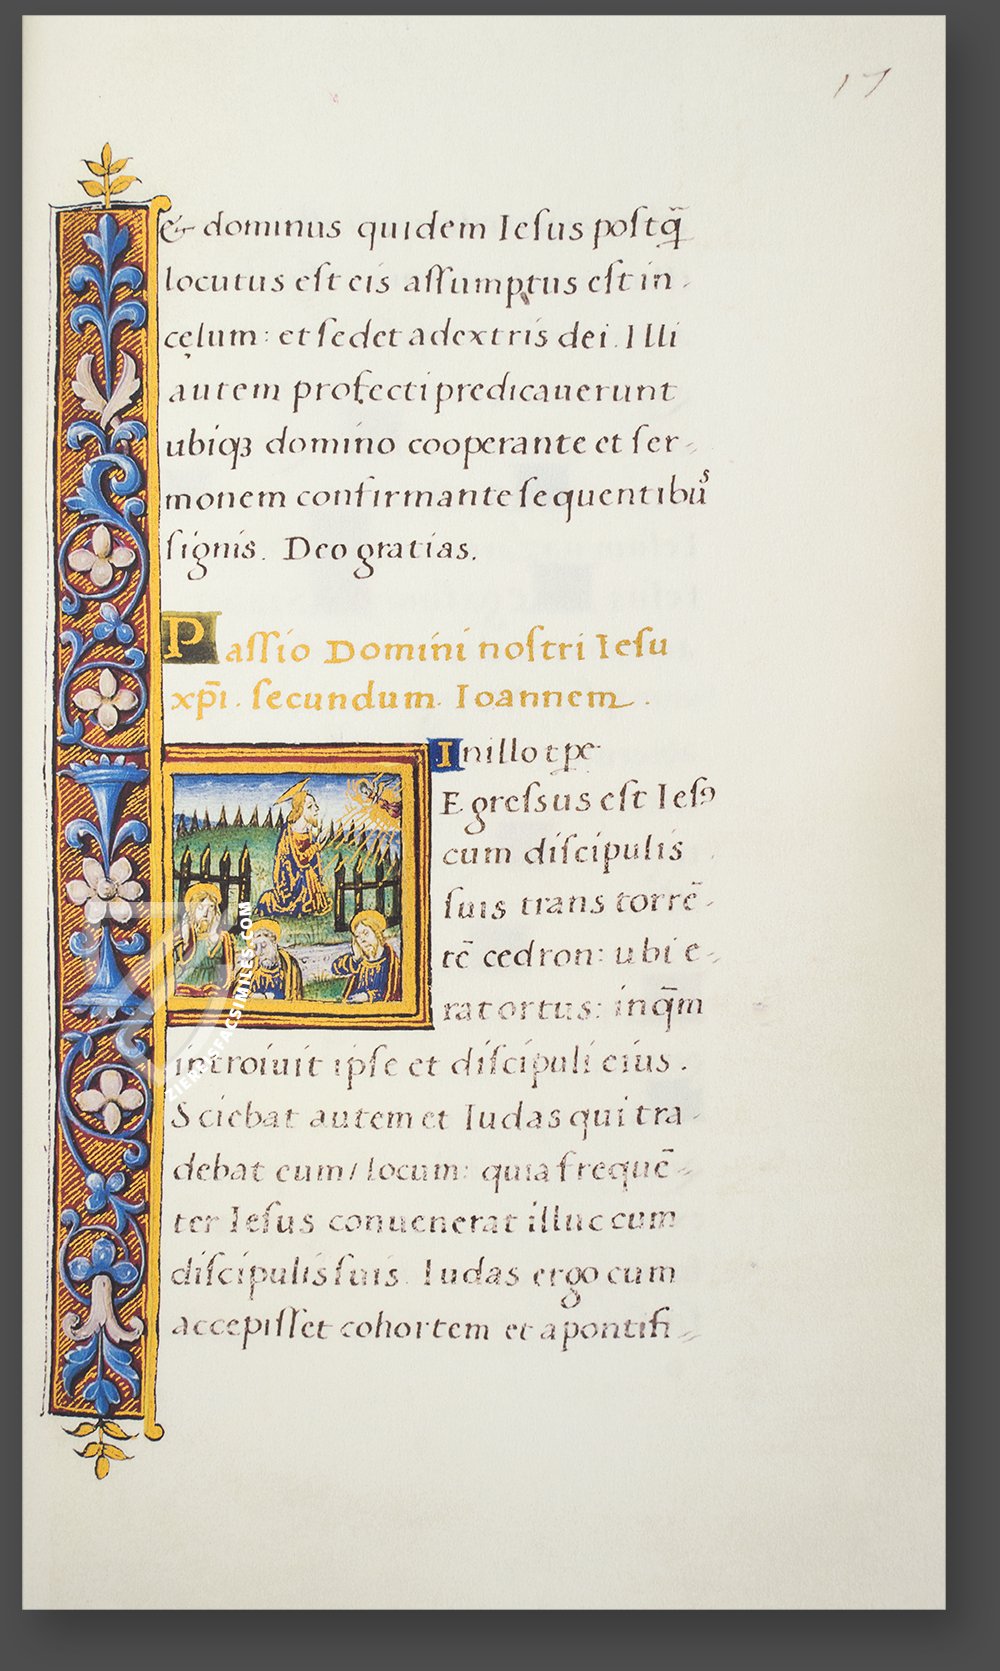 17
& dominus quidem Ieſus poſtq̃
locutus eſt eis aſſumptus eſt in
cęlum: et ſedet adextris dei. Illi
autem profecti predicauerunt
ubiqꝫ domino cooperante et ſer-
monem confirmante ſequentibuˢ
ſignis. Deo gratias.
Paſſio Domini noſtri Ieſu
xp̄i. ſecundum. Ioannem.
In illo tpe
Egreſſus eſt Ieſꝰ
cum diſcipulis
ſuis trans torrē-
tē cedron: ubi e-
rat ortus: inq̄m
introiuit ipſe et diſcipuli eius.
Sciebat autem et Iudas qui tra-
debat eum/locum: quia frequē-
ter Ieſus conuenerat illuc cum
diſcipulis ſuis. Iudas ergo cum
accepiſſet cohortem et a pontifi-
ZIEREISFACSIMILES.COM